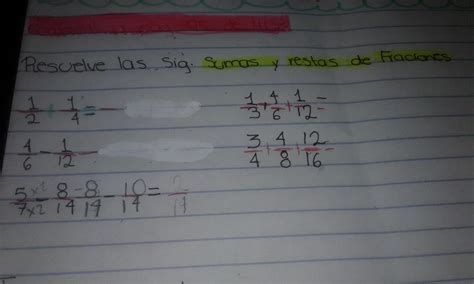 Resuelve las sig. sumas y restas de Fraciones
1/2 + 1/4 = —
1/3 + 4/6 + 1/12 =
4/6 - 1/12 —
3/4 + 4/8 + 12/16 =
5/7 x2/x2 - 8/14 - 8/14 - 10/14 =